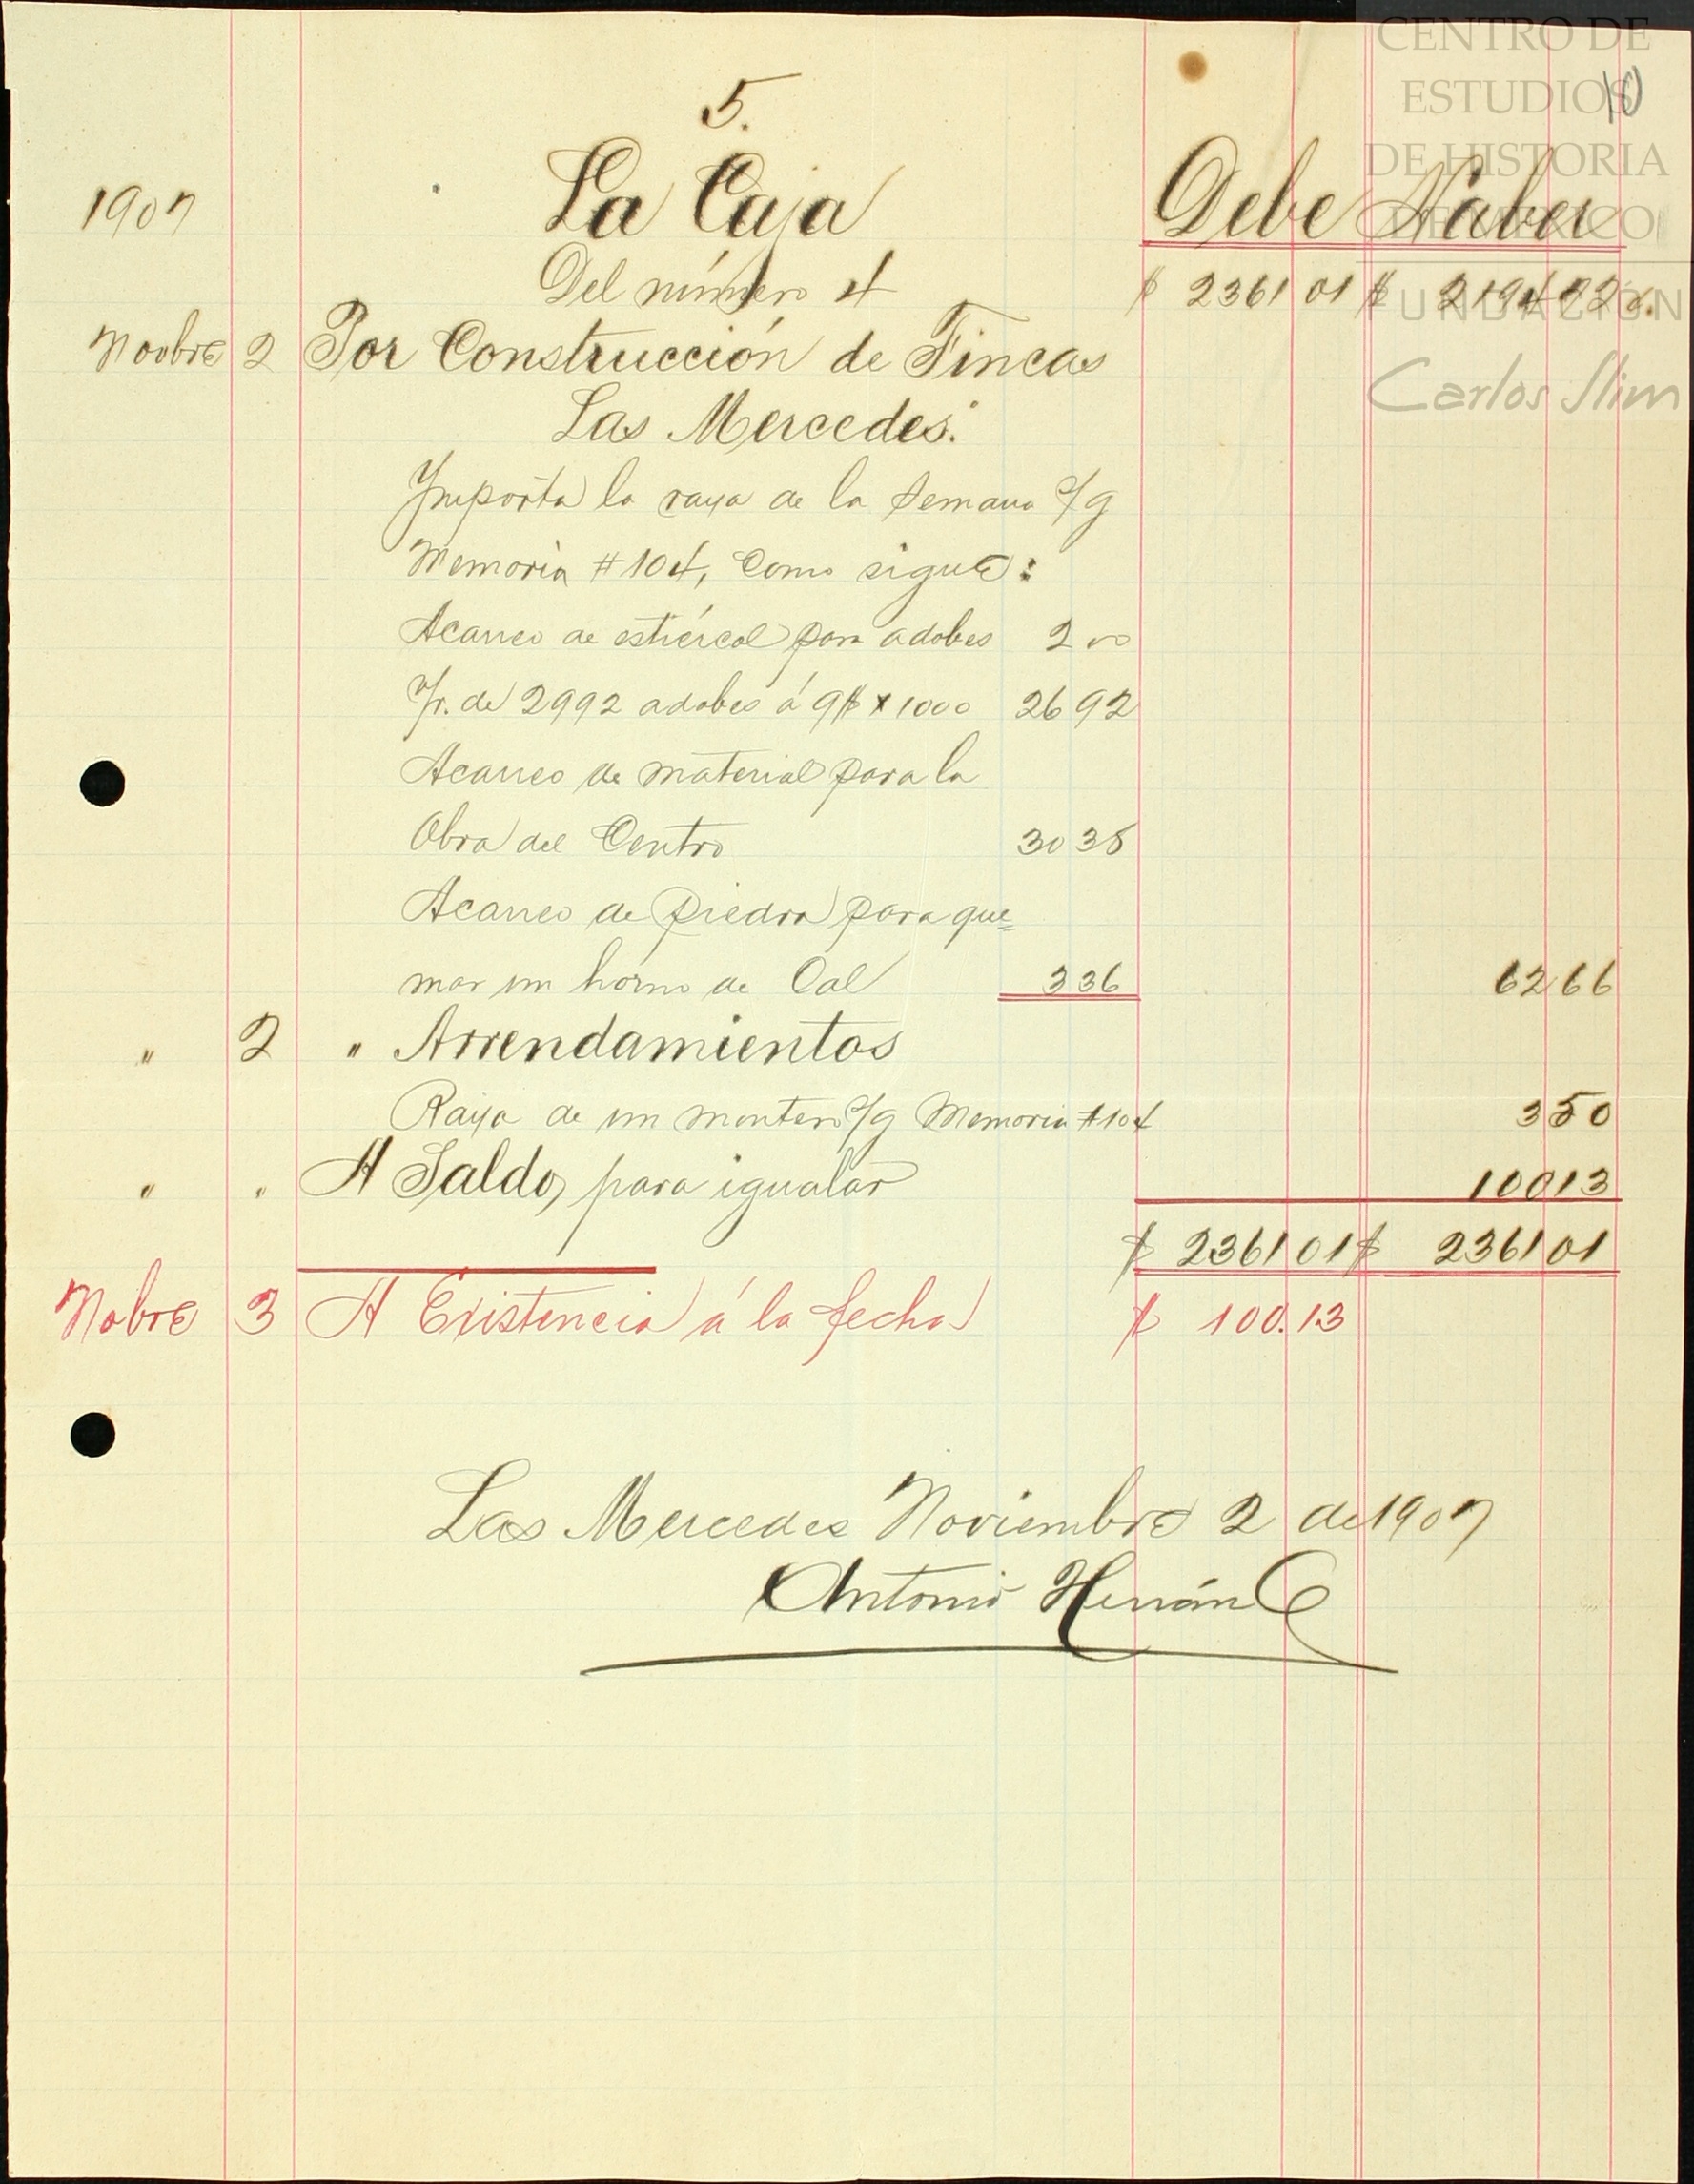 CENTRO DE
ESTUDIOS
DE HISTORIA
DE MÉXICO
FUNDACIÓN
Carlos Slim
10
5.
1907 La Caja Debe Haber
Del número 4 $ 2361 01 $ 2194 72
Novbre 2 Por Construcción de Fincas
Las Mercedes.
Importa la raya de la semana s/g
Memoria #104, como sigue:
Acarreo de estiércol para adobes 2 00
Fr. de 2992 adobes á 9$ x 1000 26 92
Acarreo de material para la
Obra del Centro 30 38
Acarreo de piedra para que=
mar un horno de Cal 3 36 62 66
" 2 " Arrendamientos
Raya de un montero s/g Memoria #104 3 50
" " A Saldo, para igualar 100 13
$ 2361 01 $ 2361 01
Nobre 3 A Existencia á la fecha $ 100.13
Las Mercedes Noviembre 2 de 1907
Antonio Hernán